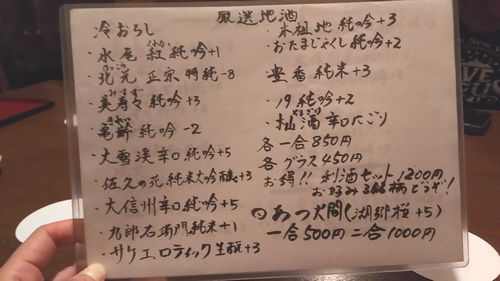 厳選地酒
冷おろし
・水尾 紅 純吟+1
・北光 正宗 特純-8
・美寿々 純吟+3
・亀齢 純吟-2
・大雪渓辛口純吟+5
・佐久の花 純米大吟醸+3
・大信州辛口純吟+5
・九郎右衛門純米+1
・サケエロティック生酛+3
・木祖 地純の吟+3
・おたまじゃくし純の吟+2
・豊香 純米+3
・19純の吟+2
辛口にごり
各一合850円
各グラス450円
お得!!利酒セット1200円
お好み3銘柄どうぞ!
あつ燗(湖郷櫻+5)
一合500円 二合1000円